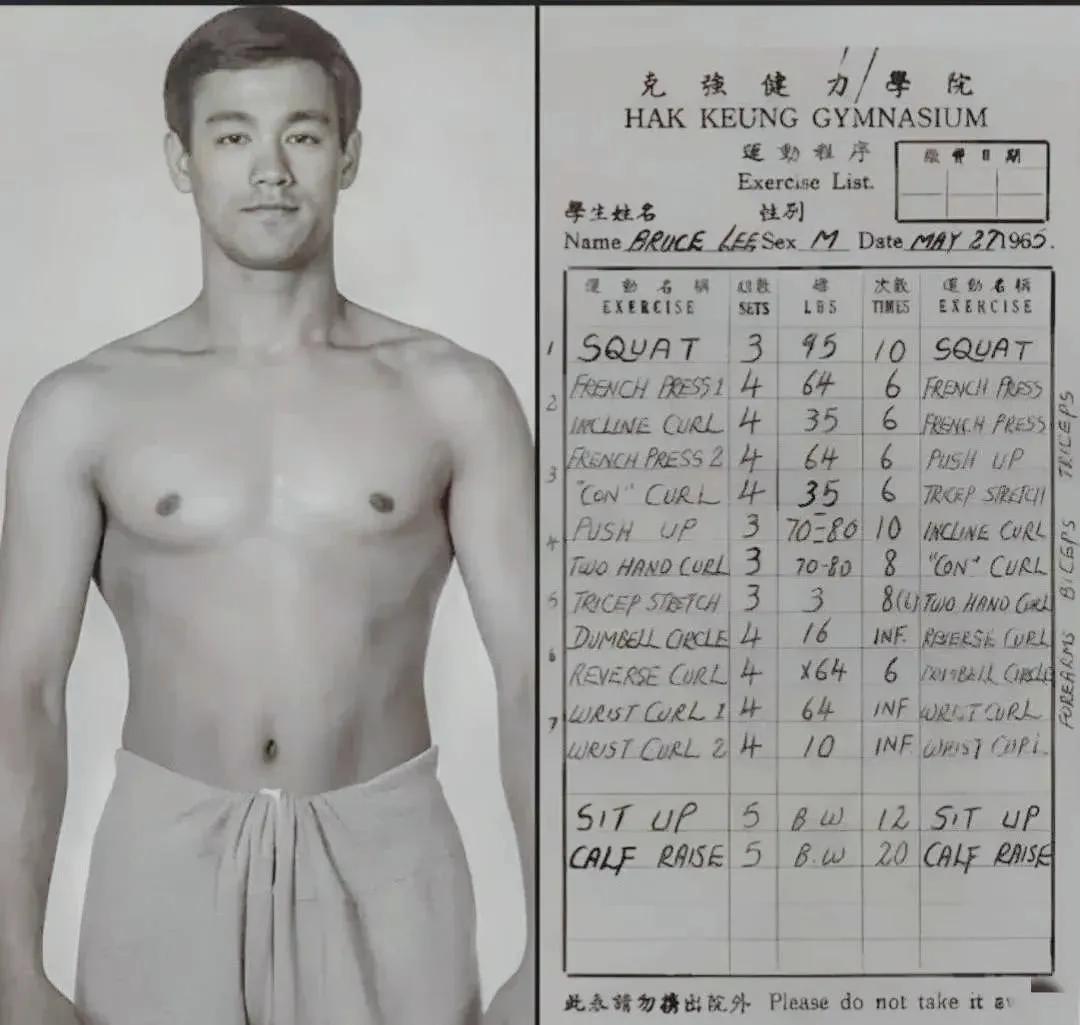 克強健力學院
HAK KEUNG GYMNASIUM
運動程序
Exercise List.
繳費日期
學生姓名 性別
Name BRUCE LEE Sex M Date MAY 27 1965.
運動名稱 組數 磅 次數 運動名稱
EXERCISE SETS LBS TIMES EXERCISE
1 SQUAT 3 95 10 SQUAT
2 FRENCH PRESS 1 4 64 6 FRENCH PRESS
INCLINE CURL 4 35 6 FRENCH PRESS
3 FRENCH PRESS 2 4 64 6 PUSH UP
"CON" CURL 4 35 6 TRICEP STRETCH
4 PUSH UP 3 70-80 10 INCLINE CURL
TWO HAND CURL 3 70-80 8 "CON" CURL
5 TRICEP STRETCH 3 3 8(6) TWO HAND CURL
DUMBELL CIRCLE 4 16 INF. REVERSE CURL
6 REVERSE CURL 4 x64 6 DUMBELL CIRCLE
7 WRIST CURL 1 4 64 INF WRIST CURL
WRIST CURL 2 4 10 INF. WRIST CURL
SIT UP 5 B.W 12 SIT UP
CALF RAISE 5 B.W 20 CALF RAISE
TRICEPS
BICEPS
FOREARMS
此表請勿携出院外 Please do not take it